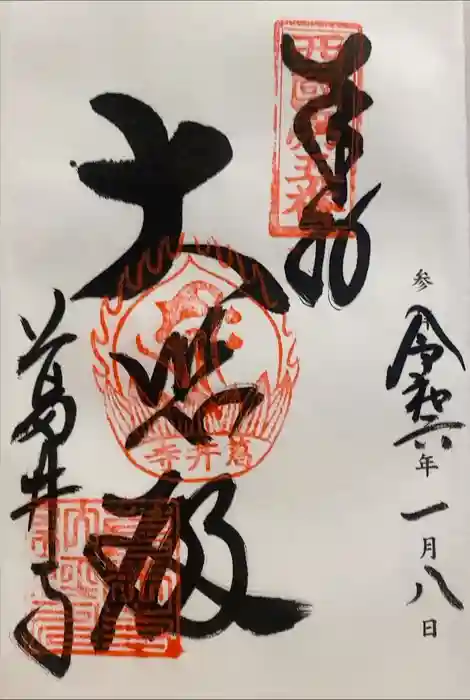 奉拝
西國第五番
参 令和六年一月八日
大悲殿
葛井寺
葛井寺